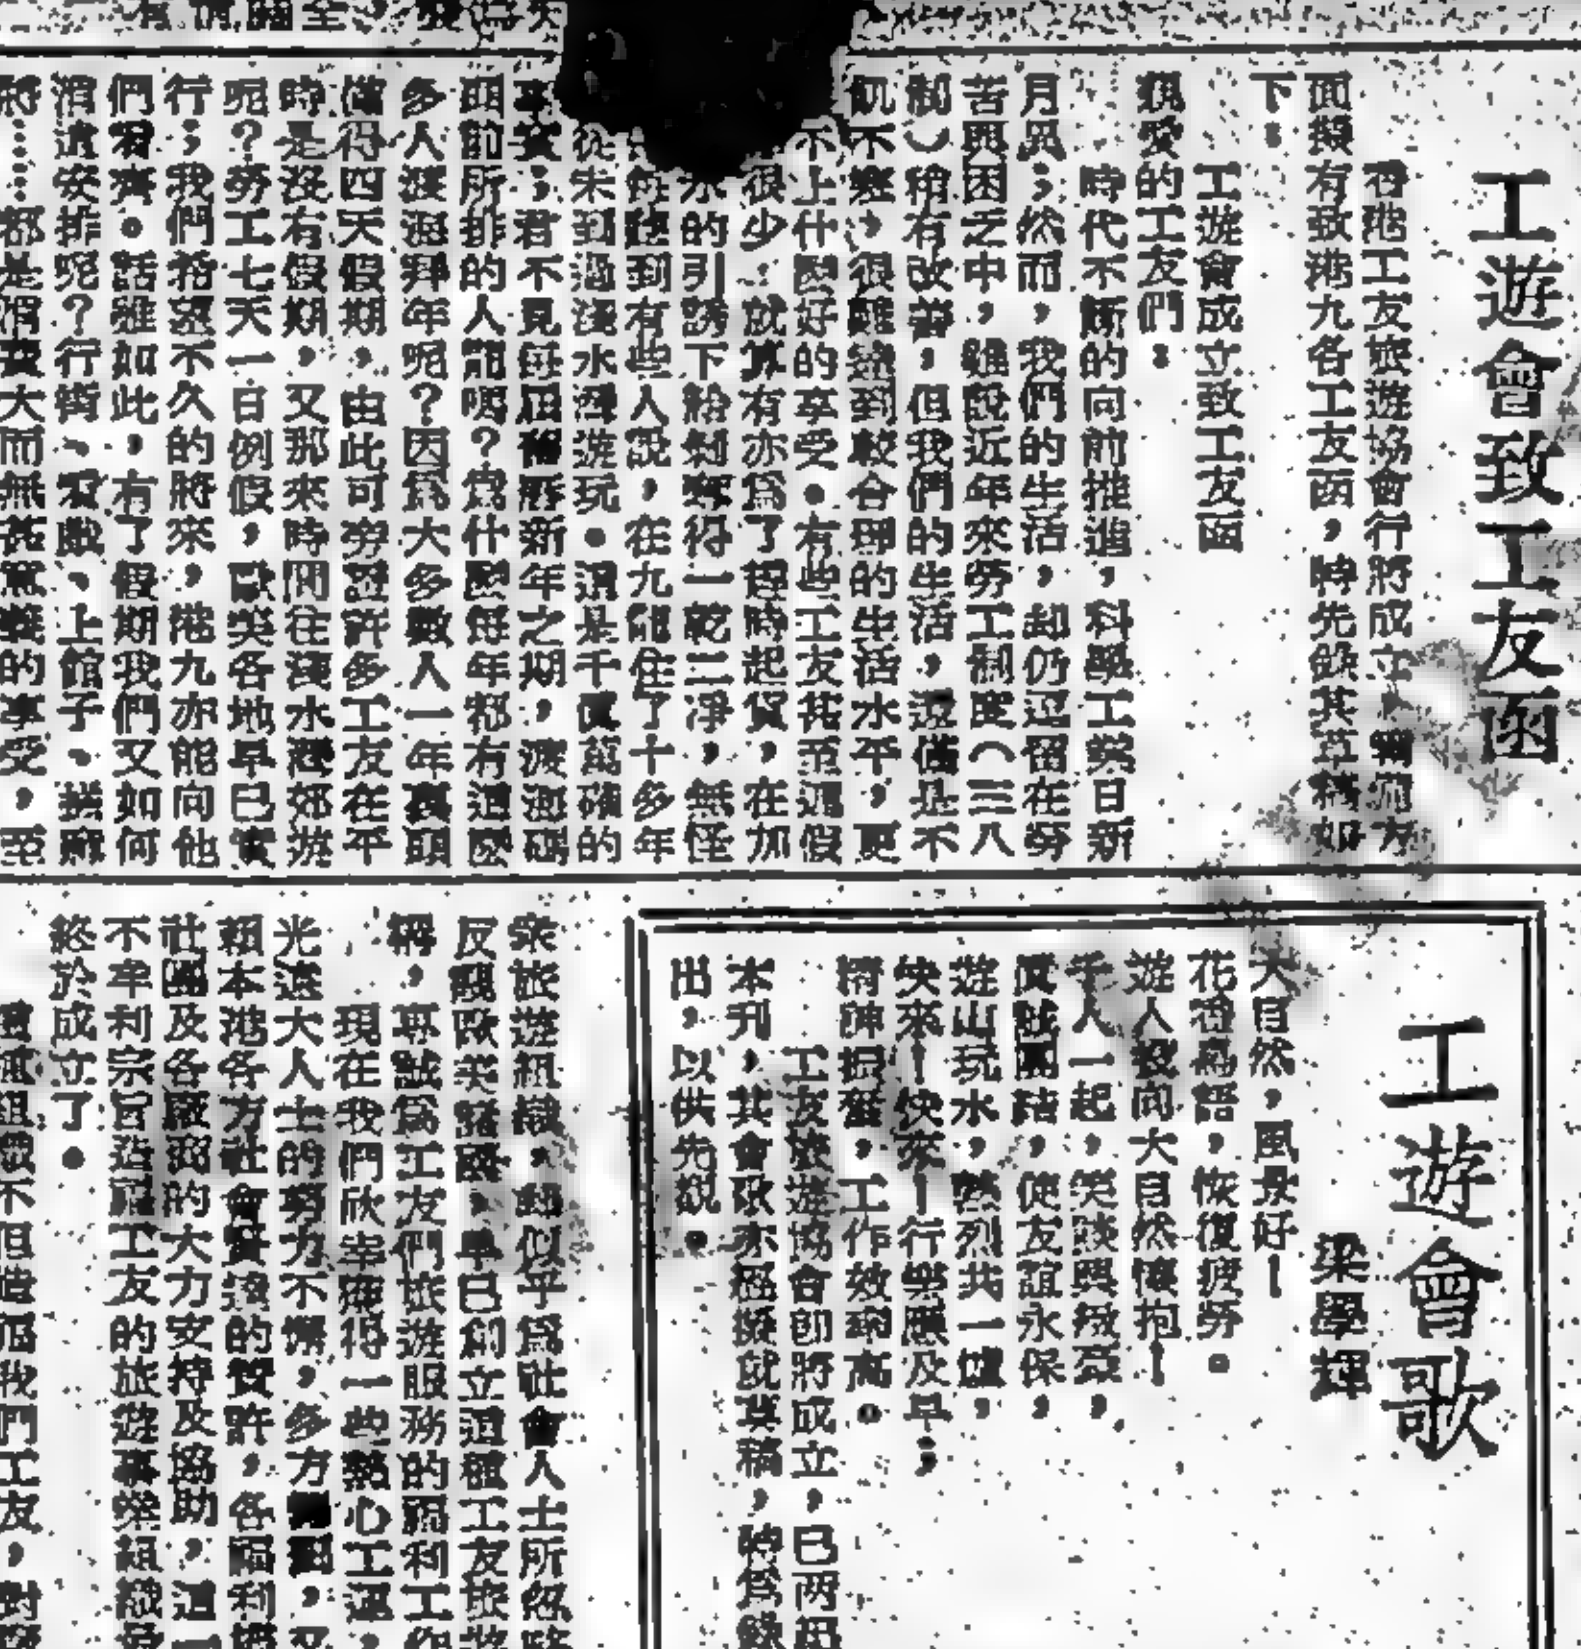 工遊會致工友函
香港工友旅遊協會行將成立,
面擬有致港九各工友函,特先錄其草稿如
下:
工遊會成立致工友函
親愛的工友們:
時代不斷的向前推進,科學工業日新
月異;然而,我們的生活,却仍逗留在勞
苦與困乏中,雖說近年來勞工制度(三八
制)稍有改善,但我們的生活,還僅是不
飢不寒,很難達到較合理的生活水平,更
不上什麼好的享受。有些工友甚至連假
很少,就算有亦爲了趕時起貨,在加
水的引誘下給剝奪得一乾二凈,無怪
每聽到有些人說,在九龍住了十多年
從未到過淺水灣遊玩。這是千眞萬確的
事實;君不見每屆舊曆新年之期,渡海碼
頭前所排的人龍嗎?爲什麼每年都有這麼
多人渡海拜年呢?因爲大多數人一年裏頭
僅得四天假期,由此可旁證許多工友在平
時是沒有假期,又那來時間往淺水灣郊遊
呢?勞工七天一日例假,歐美各地早已實
行;我們希望不久的將來,港九亦能向他
們看齊。話雖如此,有了假期我們又如何
消遣安排呢?行街、看戲、上館子、搓麻
將……都是消費大而無甚意義的享受,至
工遊會歌
梁學輝
大自然,風景好!
花香鳥語,恢復疲勞。
遊人投向大自然懷抱!
千人一起,笑談與繳臺,
眞誠團結,使友誼永保,
遊山玩水,熱烈共一爐,
快來!快來!行樂應及早;
精神振奮,工作效率高。
工友旅遊協會即將成立,已两組
本刊,其會歌亦經擬就草稿,特爲錄
出,以供先覩。
衆旅遊組織,却似乎爲社會人士所忽略
反觀歐美諸國,早已創立這種工友旅遊
構,專誠爲工友們旅遊服務的福利工作
現在我們欣幸獲得一些熱心工運,
光遠大人士的努力不懈,多方,又
賴本港各方社會賢達的贊許,各福利
社團及各廠商的大力支持及協助,這一
不牟利宗旨造福工友的旅遊事業組織
終於成立了。
組織不但造福我們工友,對